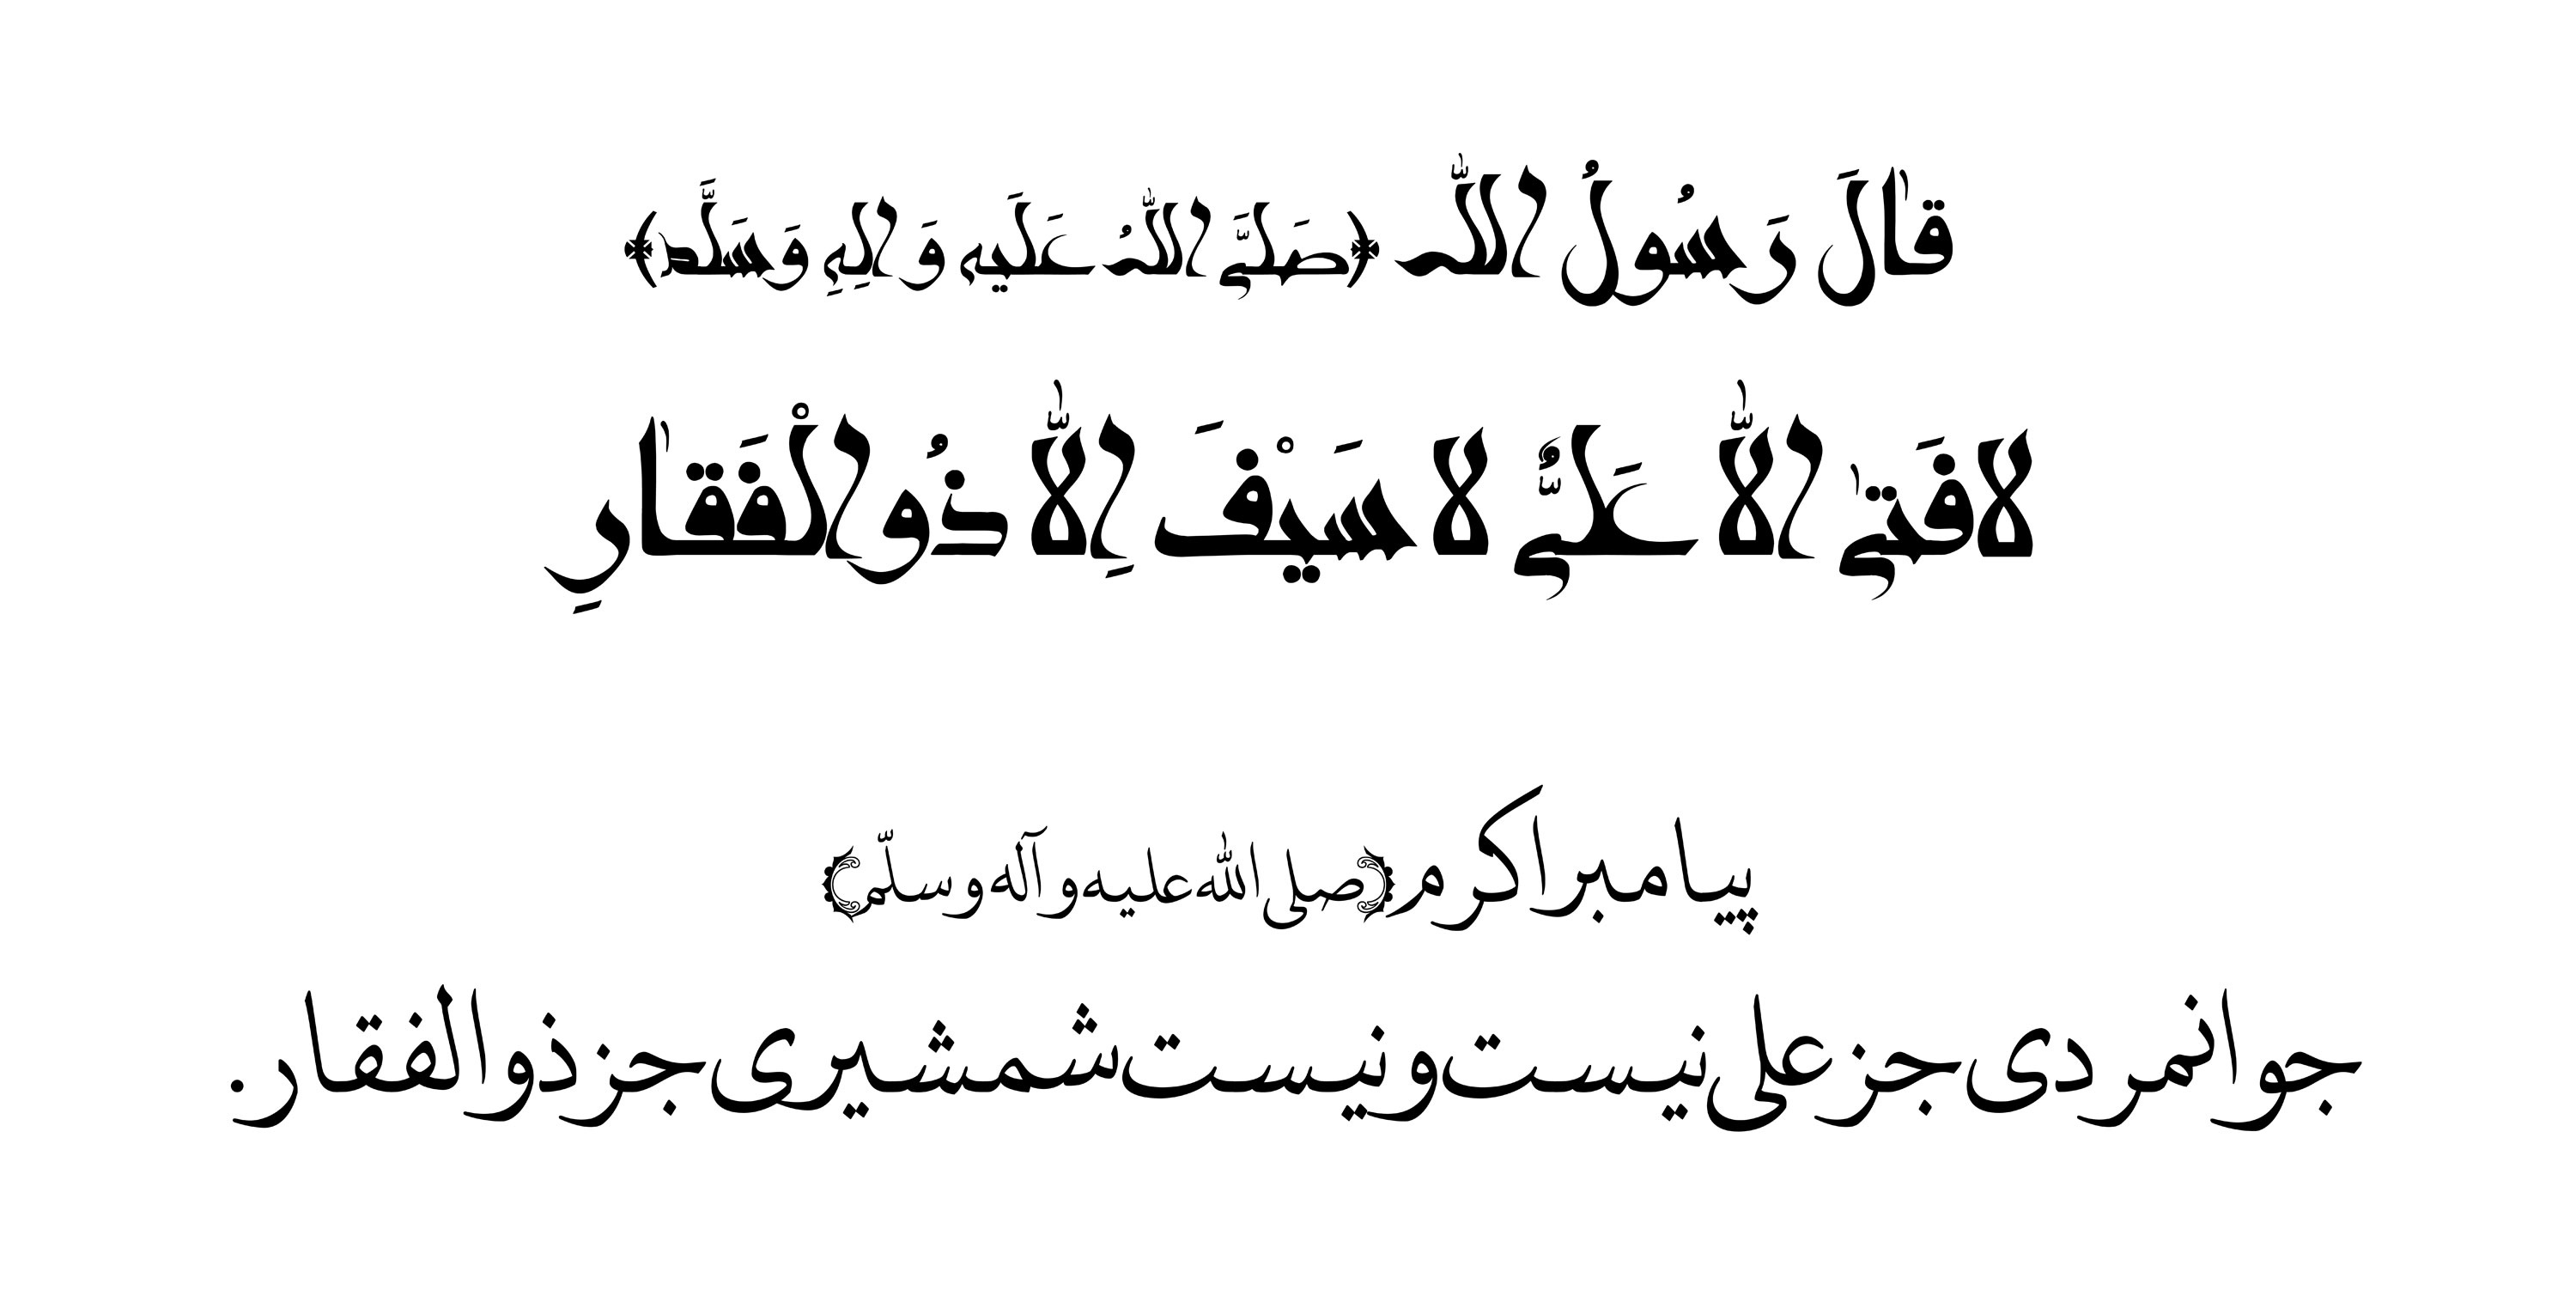 قٰالَ رَسُولُ اللّٰه ﴿صَلَیَّ اللّٰهُ عَلَیه وَ الِهِ وَسَلَّم﴾
لا فَتیٰ الّٰا عَلیٌّ لا سَیْفَ اِلّٰا ذُوالْفَقٰارِ
پیامبر اکرم ﴿صلی اللّٰه علیه و آله و سلّم﴾
جوانمردی جز علی نیست و نیست شمشیری جز ذوالفقار.